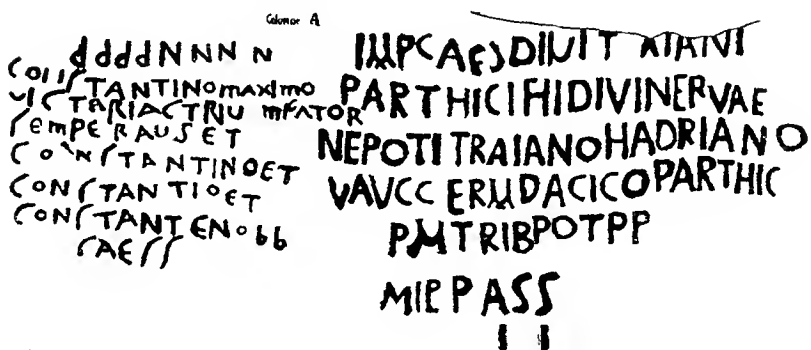 Columna A
ddddNNNN
CONSTANTINO maximo
VICTORIAC TRIUMFATOR
SEMPERAUSET
CONSTANTINOET
CONSTANTIOET
CONSTANTENobb
CAESS
IMPCAESDIVI TRAIANI
PARTHICIFIDIVINERVAE
NEPOTI TRAIANOHADRIANO
VAVCC ERMDACICOPARTHIC
PMTRIBPOTPP
MIEPASS
II